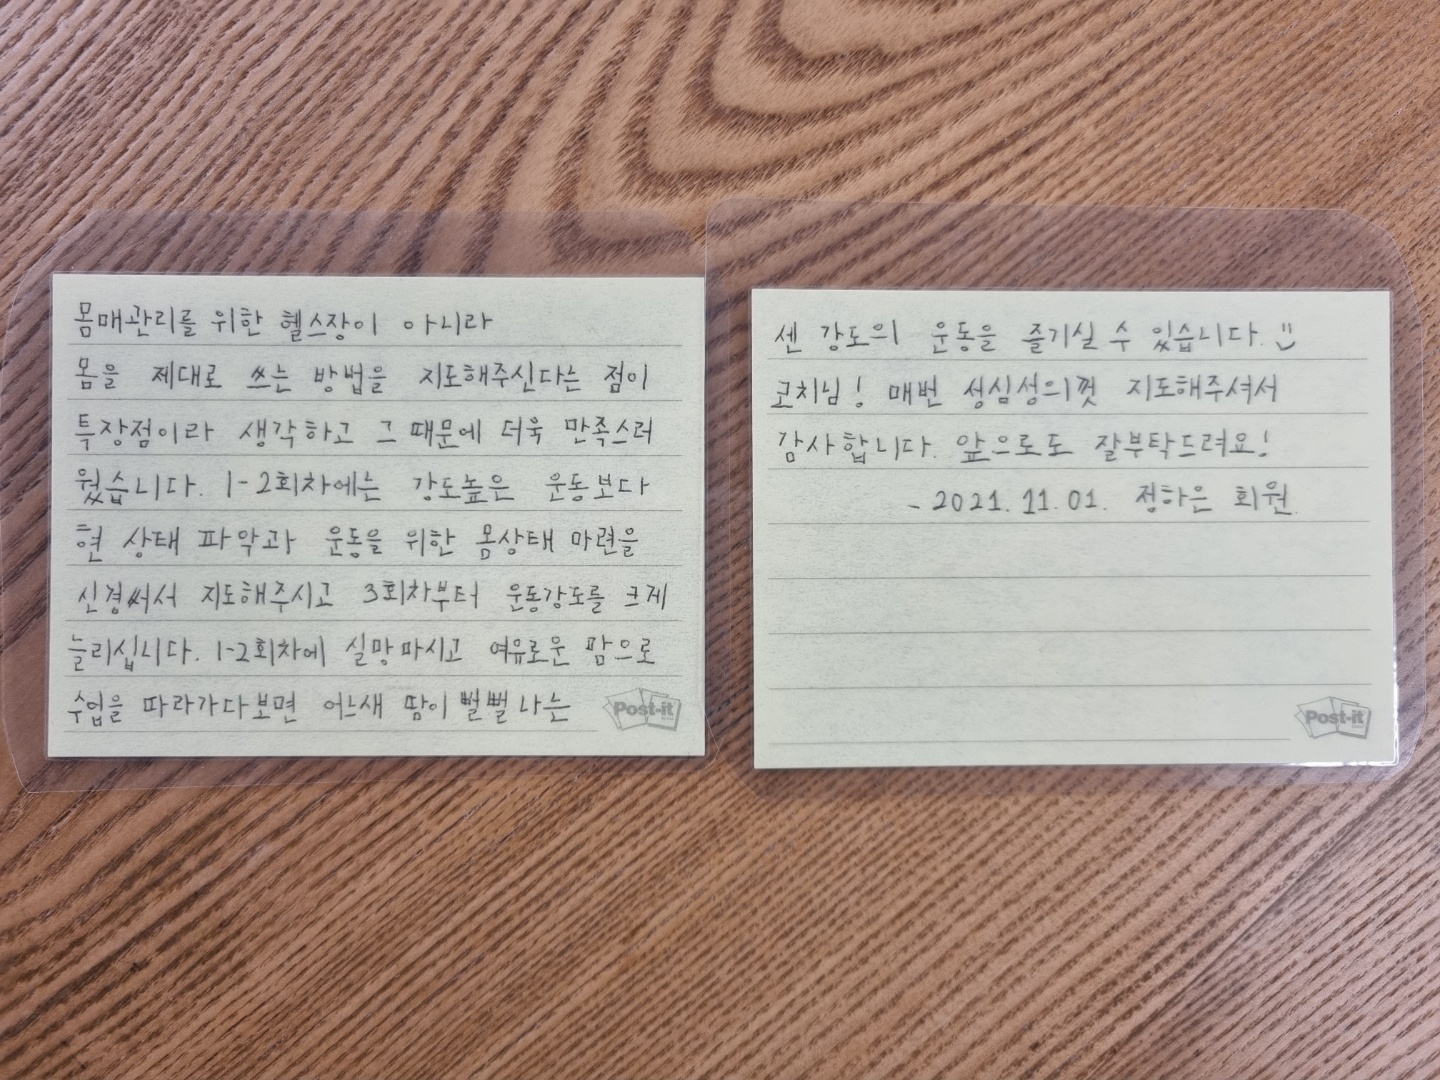 몸매관리를 위한 헬스장이 아니라
몸을 제대로 쓰는 방법을 지도해주신다는 점이
특장점이라 생각하고 그 때문에 더욱 만족스러
웠습니다. 1-2회차에는 강도높은 운동보다
현 상태 파악과 운동을 위한 몸상태 마련을
신경써서 지도해주시고 3회차부터 운동강도를 크게
늘리십니다. 1-2회차에 실망마시고 여유로운 맘으로
수업을 따라가다보면 어느새 땀이 뻘뻘 나는
Post-it
센 강도의 운동을 즐기실 수 있습니다.
코치님! 매번 성심성의껏 지도해주셔서
감사합니다. 앞으로도 잘부탁드려요!
- 2021. 11. 01. 정하은 회원.
Post-it